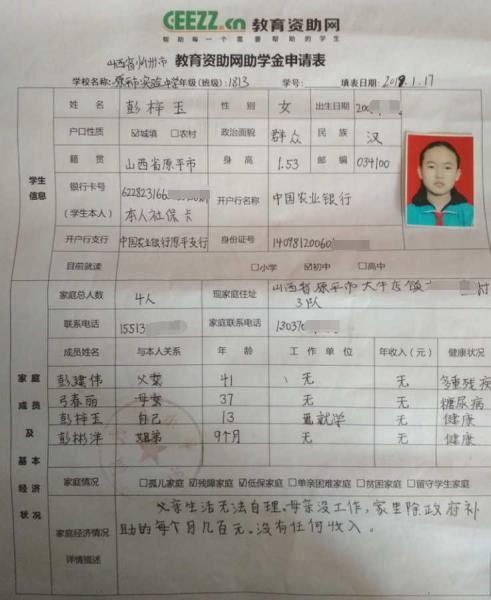 GEEZZ.cn 教育资助网
帮助每一个需要帮助的学生
山西省忻州市 教育资助网助学金申请表
学校名称: 原平市实验中学 年级(班级): 1813 学号: 填表日期: 2019.1.17
学生信息
姓名 彭梓玉 性别 女 出生日期 200
户口性质 ☑城镇 □农村 政治面貌 群众 民族 汉
籍贯 山西省原平市 身高 1.53 邮编 034100
银行卡号 622823166
(学生本人) 本人社保卡 开户行名称 中国农业银行
开户行支行 中国农业银行原平支行 身份证号 14098120060
目前就读 □小学 ☑初中 □高中
家庭成员及基本经济状况
家庭总人数 4人 现家庭住址 山西省原平市大牛店镇 村
3队
联系电话 15513 家庭联系电话 13037
成员姓名 与本人关系 年龄 工作单位 年收入(元) 健康状况
彭建伟 父亲 41 无 无 多重残疾
弓春丽 母亲 37 无 无 糖尿病
彭梓玉 自己 13 就学 无 健康
彭彬洋 姐弟 9个月 无 无 健康
家庭情况 □孤儿家庭 ☑残障家庭 ☑低保家庭 □单亲困难家庭 □贫困家庭 □留守学生家庭
家庭经济情况
详情描述
父亲生活无法自理,母亲没工作,家里除政府补
助的每个月几百元。没有任何收入。